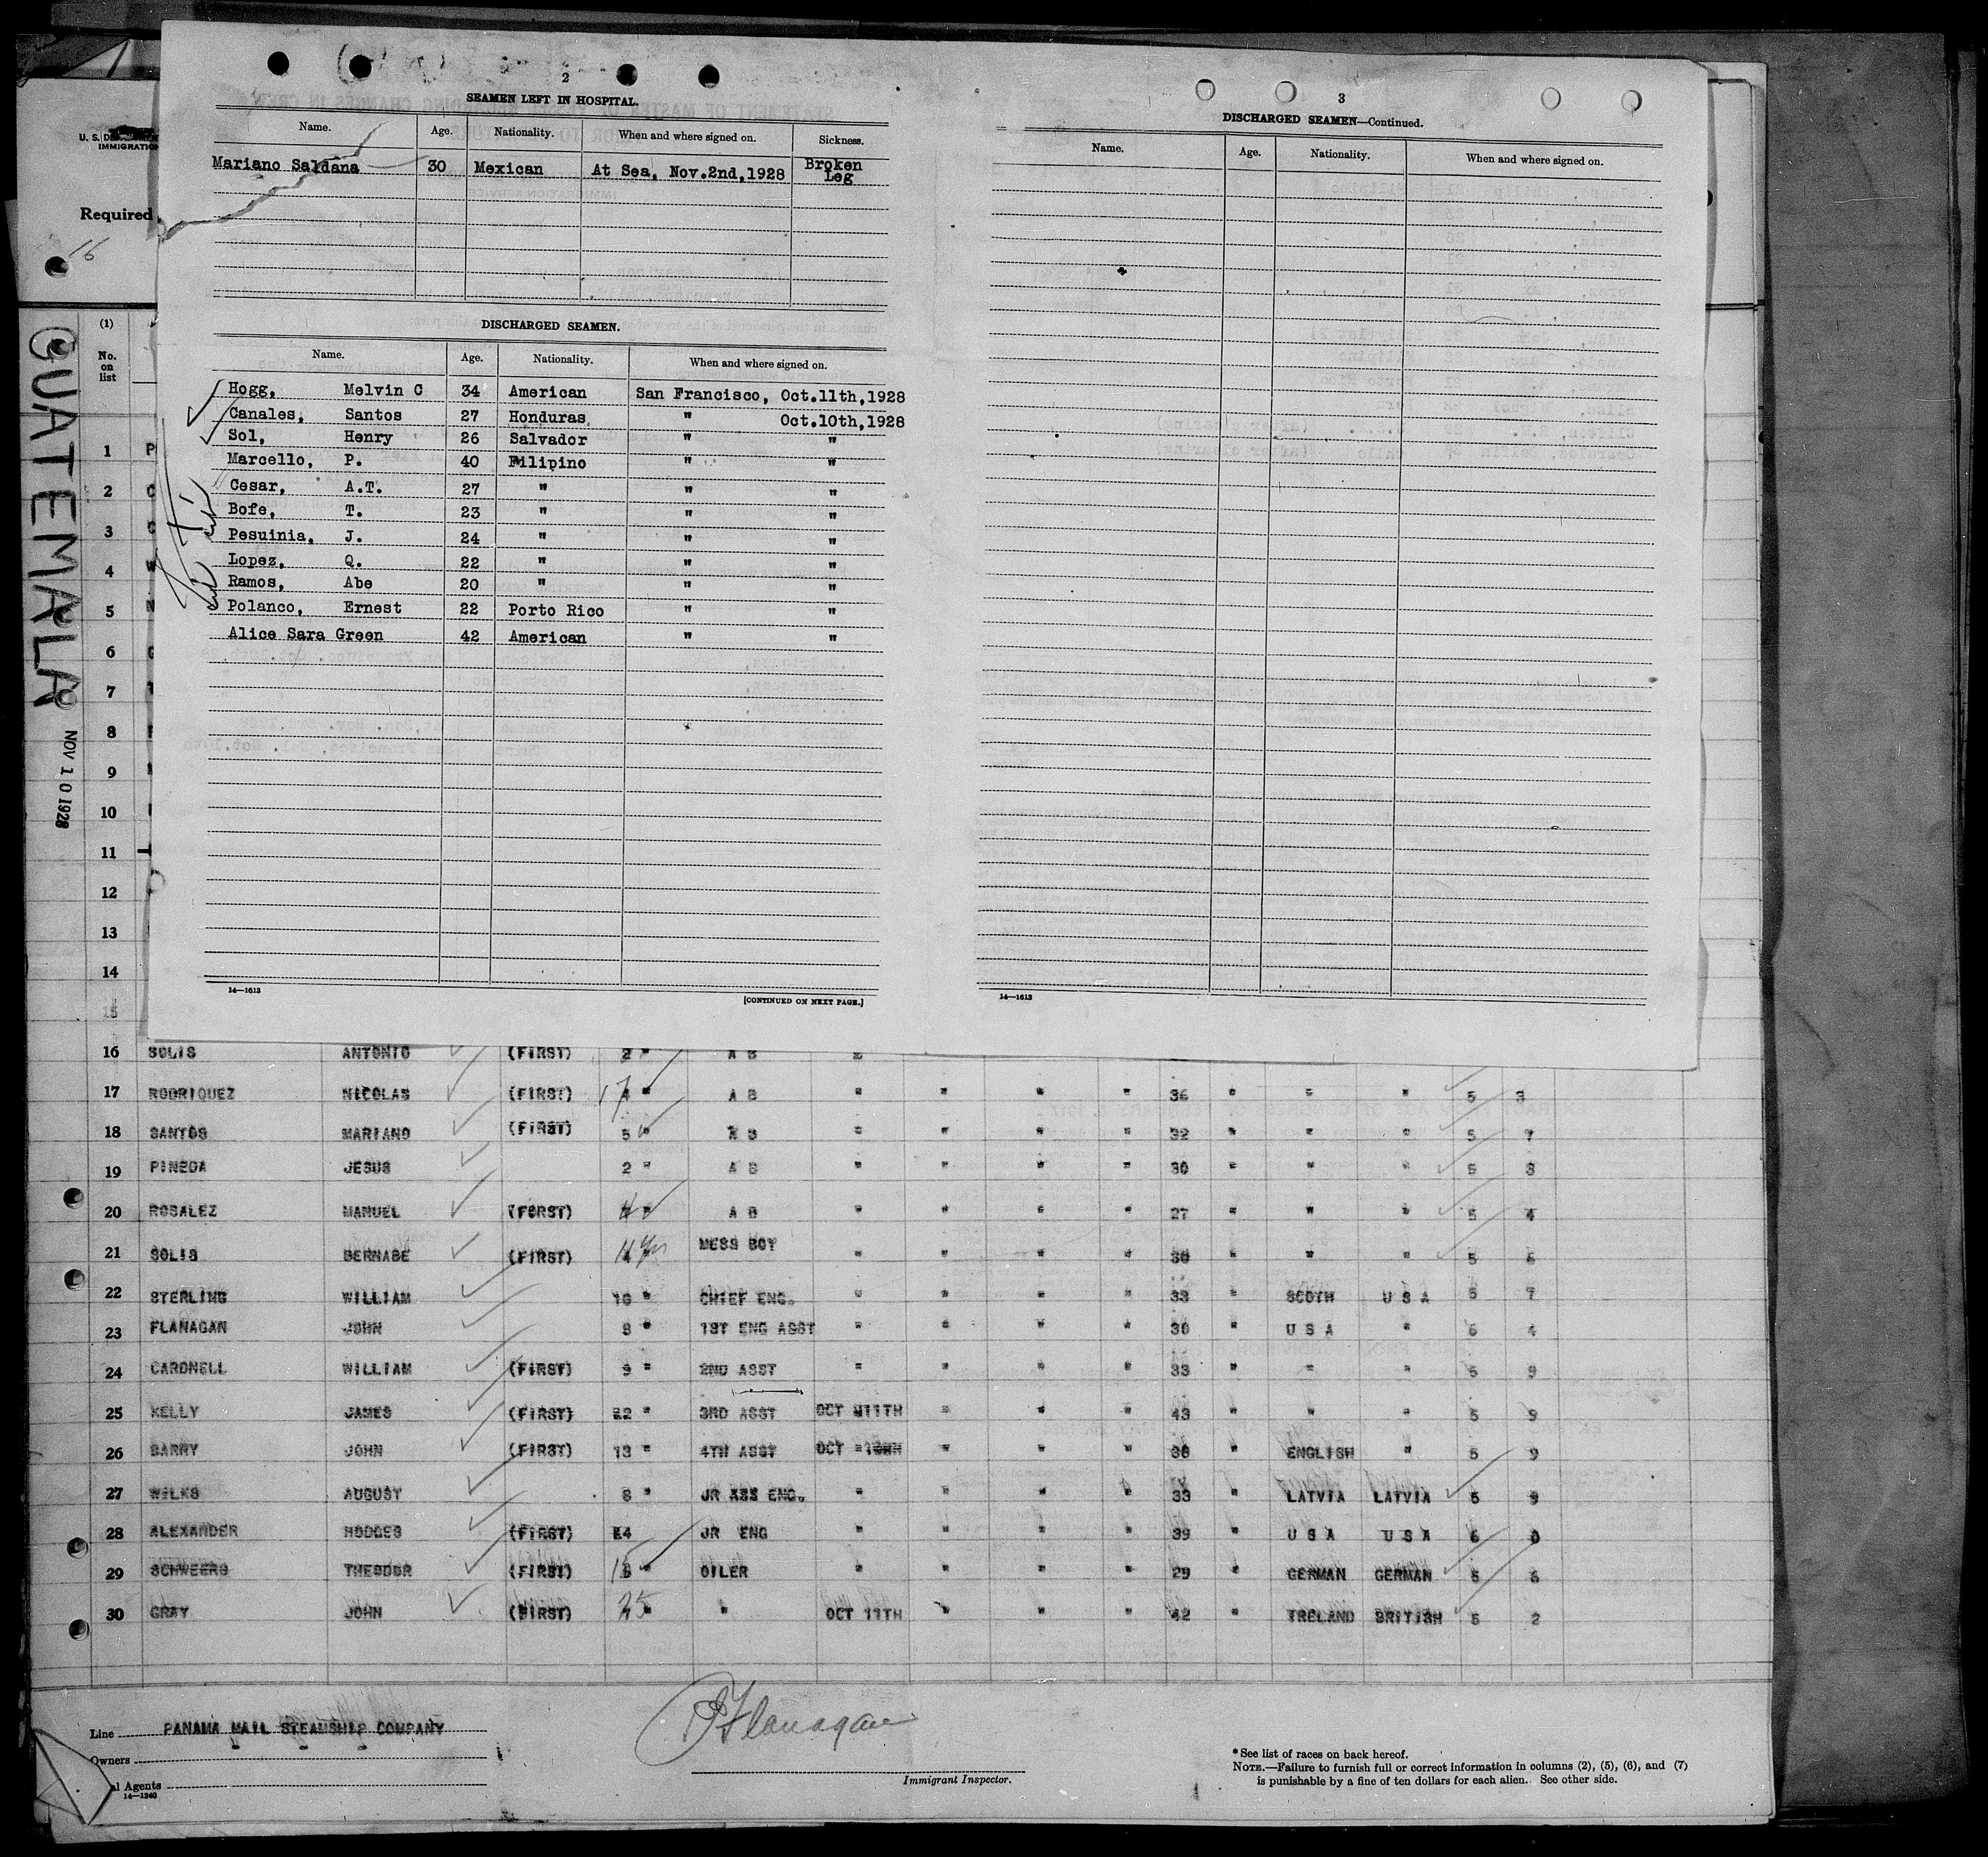 2
SEAMEN LEFT IN HOSPITAL.
Name. Age. Nationality. When and where signed on. Sickness.
Mariano Saldana 30 Mexican At Sea, Nov.2nd,1928 Broken Leg
DISCHARGED SEAMEN.
Name. Age. Nationality. When and where signed on.
Hogg, Melvin C 34 American San Francisco, Oct.11th,1928
Canales, Santos 27 Honduras, " Oct.10th,1928
Sol, Henry 26 Salvador " "
Marcello, P. 40 Filipino " "
Cesar, A.T. 27 " " "
Bofe, T. 23 " " "
Pesuinia, J. 24 " " "
Lopez, Q. 22 " " "
Ramos, Abe 20 " " "
Polanco, Ernest 22 Porto Rico " "
Alice Sara Green 42 American " "
14—1613
[CONTINUED ON NEXT PAGE.]
3
DISCHARGED SEAMEN—Continued.
Name. Age. Nationality. When and where signed on.
14—1613
U. S. DE
IMMIGRATION
Required
16
GUATEMALA
NOV 10 1928
(1)
No. on list
1 P
2 C
3 C
4 W
5 N
6 G
7 T
8
9
10
11
12
13
14
15
16 SOLIS ANTONIO (FIRST) 2 " A B
17 RODRIQUEZ NICOLAS (FIRST) 17 " A B " " " " 36 " " " 5 3
18 SANTOS MARIANO (FIRST) 5 " A B " " " " 32 " " " 5 7
19 PINEDA JESUS 2 " A B " " " " 30 " " " 5 8
20 ROSALEZ MANUEL (FIRST) 4 " A B " " " " 27 " " " 5 4
21 SOLIS BERNABE (FIRST) MESS BOY " " " " 30 " " " 5 6
22 STERLING WILLIAM 10 " CHIEF ENG. " " " " 33 " SCOTH U S A 5 7
23 FLANAGAN JOHN 8 " 1ST ENG ASST " " " " 30 " U S A " 6 4
24 CARDNELL WILLIAM (FIRST) 9 " 2ND ASST " " " " 33 " " " 5 9
25 KELLY JAMES (FIRST) 22 " 3RD ASST OCT 11TH " " " 43 " " " 5 9
26 BARRY JOHN (FIRST) 13 " 4TH ASST OCT 10TH " " " 38 " ENGLISH " 5 9
27 WILKS AUGUST 8 " JR ENG. " " " " 33 " LATVIA LATVIA 5 9
28 ALEXANDER HODGES (FIRST) 14 JR ENG " " " " 39 " U S A U S A 6 0
29 SCHWEERS THEODOR (FIRST) 15 " OILER " " " " 29 " GERMAN GERMAN 5 6
30 GRAY JOHN (FIRST) 25 " " OCT 11TH " " " 42 " IRELAND BRITISH 5 2
Line PANAMA MAIL STEAMSHIP COMPANY
Owners
al Agents
14—1240
Flanagan
Immigrant Inspector.
* See list of races on back hereof.
NOTE.—Failure to furnish full or correct information in columns (2), (5), (6), and (7)
is punishable by a fine of ten dollars for each alien. See other side.